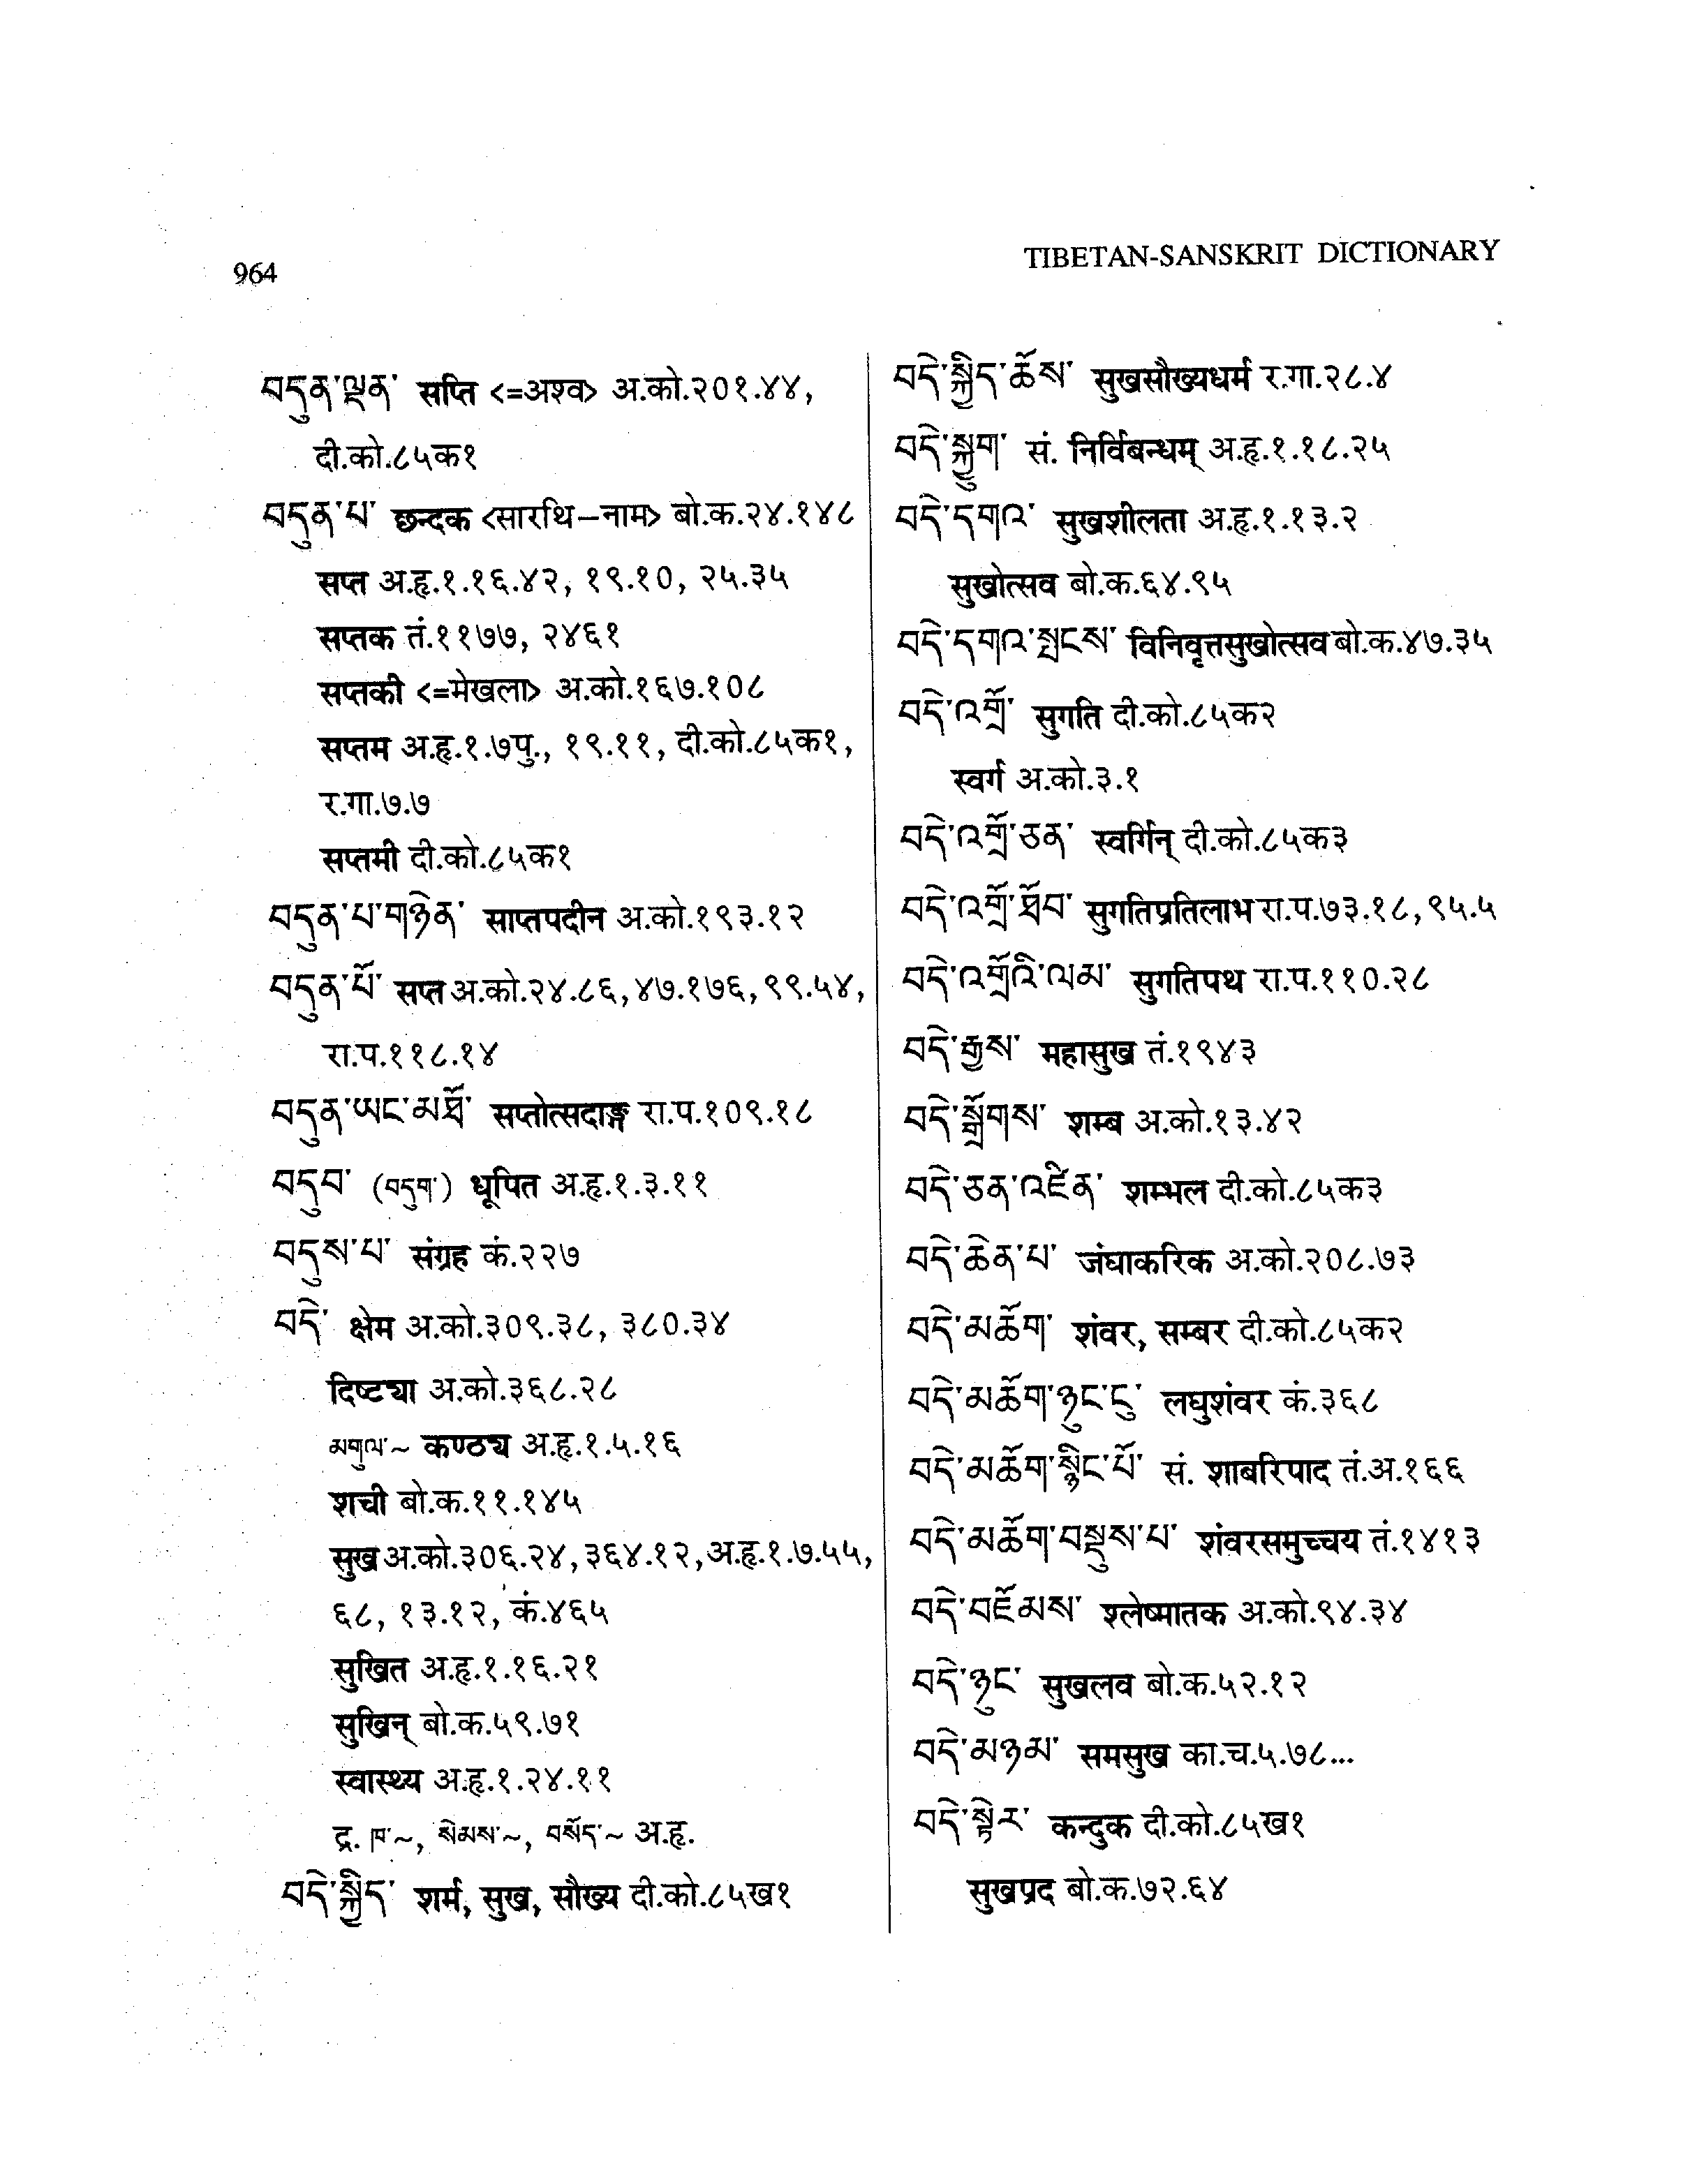 964
TIBETAN-SANSKRIT DICTIONARY
བདུན་ལྡན་ सप्ति <=अश्व> अ.को.२०१.४४,
दी.को.८५क१
བདུན་པ་ छन्दक <सारथि–नाम> बो.क.२४.१४८
सप्त अ.हृ.१.१६.४२, १९.१०, २५.३५
सप्तक तं.११७७, २४६१
सप्तकी <=मेखला> अ.को.१६७.१०८
सप्तम अ.हृ.१.७पु., १९.११, दी.को.८५क१,
र.गा.७.७
सप्तमी दी.को.८५क१
བདུན་པ་གཉེན་ साप्तपदीन अ.को.१९३.१२
བདུན་པོ་ सप्त अ.को.२४.८६,४७.१७६,९९.५४,
रा.प.११८.१४
བདུན་ཡང་མཐོ་ सप्तोत्सदाङ्ग रा.प.१०९.१८
བདུབ་ (བདུག་) धूपित अ.हृ.१.३.११
བདུས་པ་ संग्रह कं.२२७
བདེ་ क्षेम अ.को.३०९.३८, ३८०.३४
दिष्ट्या अ.को.३६८.२८
མགུལ་~ कण्ठ्य अ.हृ.१.५.१६
शची बो.क.११.१४५
सुख अ.को.३०६.२४,३६४.१२,अ.हृ.१.७.५५,
६८, १३.१२, कं.४६५
सुखित अ.हृ.१.१६.२१
सुखिन् बो.क.५९.७१
स्वास्थ्य अ.हृ.१.२४.११
द्र. ཁ་~, སེམས་~, བསོད་~ अ.हृ.
བདེ་སྐྱིད་ शर्म, सुख, सौख्य दी.को.८५ख१
བདེ་སྐྱིད་ཆོས་ सुखसौख्यधर्म र.गा.२८.४
བདེ་སྐྱུག་ सं. निर्विबन्धम् अ.हृ.१.१८.२५
བདེ་དགའ་ सुखशीलता अ.हृ.१.१३.२
सुखोत्सव बो.क.६४.९५
བདེ་དགའ་སྤངས་ विनिवृत्तसुखोत्सव बो.क.४७.३५
བདེ་འགྲོ་ सुगति दी.को.८५क२
स्वर्ग अ.को.३.१
བདེ་འགྲོ་ཅན་ स्वर्गिन् दी.को.८५क३
བདེ་འགྲོ་ཐོབ་ सुगतिप्रतिलाभ रा.प.७३.१८,९५.५
བདེ་འགྲོའི་ལམ་ सुगतिपथ रा.प.११०.२८
བདེ་རྒྱས་ महासुख तं.१९४३
བདེ་སྒྲོགས་ शम्ब अ.को.१३.४२
བདེ་ཅན་འཛིན་ शम्भल दी.को.८५क३
བདེ་ཆེན་པ་ जंघाकरिक अ.को.२०८.७३
བདེ་མཆོག་ शंवर, सम्बर दी.को.८५क२
བདེ་མཆོག་ཉུང་ངུ་ लघुशंवर कं.३६८
བདེ་མཆོག་སྙིང་པོ་ सं. शाबरिपाद तं.अ.१६६
བདེ་མཆོག་བསྡུས་པ་ शंवरसमुच्चय तं.१४१३
བདེ་བཛོམས་ श्लेष्मातक अ.को.९४.३४
བདེ་ཉུང་ सुखलव बो.क.५२.१२
བདེ་མཉམ་ समसुख का.च.५.७८...
བདེ་སྟེར་ कन्दुक दी.को.८५ख१
सुखप्रद बो.क.७२.६४